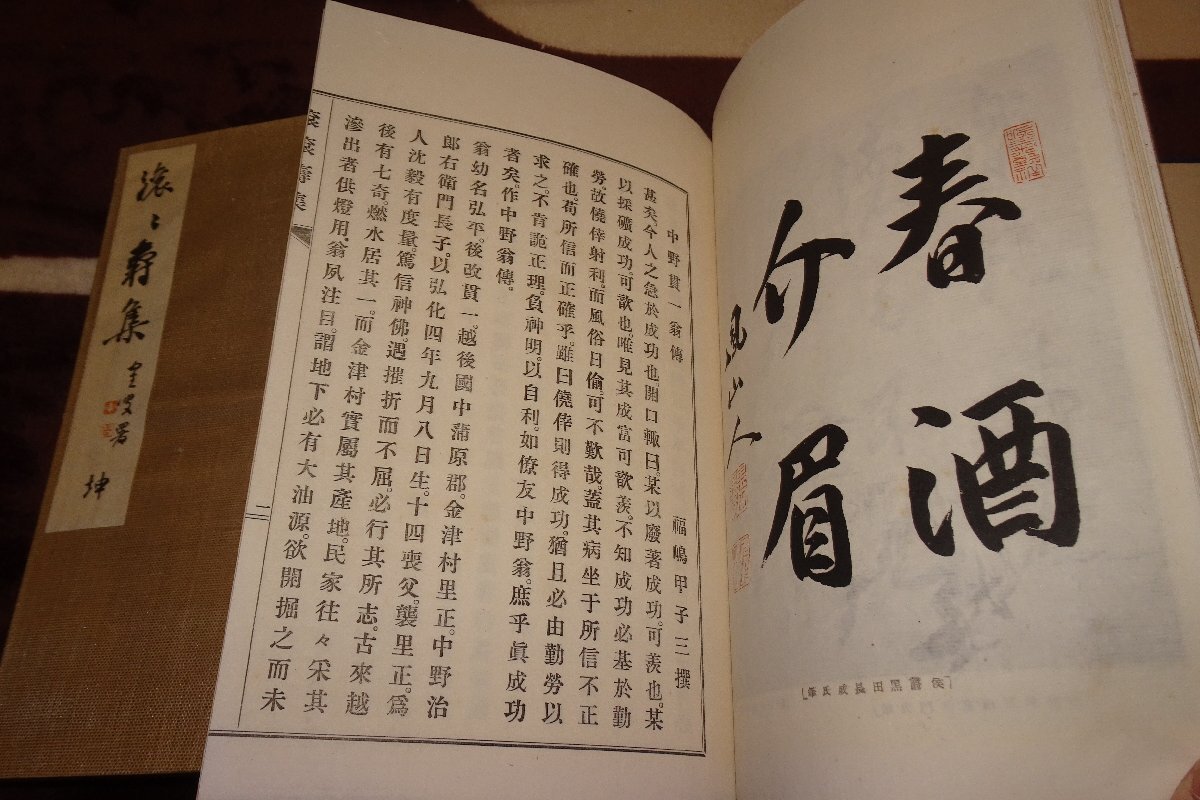 春酒
介眉
侯爵黑田長成氏筆
中野貫一翁傳
福嶋甲子三撰
甚矣。今人之急於成功也。開口輙曰。某以廢著成功。可羨也。某
以採礦成功。可歆也。唯見其成富可歆羨。不知成功必基於勤
勞。故僥倖射利。而風俗日偷。可不歎哉。蓋其病坐于所信不正
確也。苟所信而正確乎。雖曰僥倖則得成功。猶且必由勤勞以
求之。不肯詭正理。負神明。以自利。如僚友中野翁。庶乎眞成功
者矣。作中野翁傳。
翁幼名弘平。後改貫一。越後國中蒲原郡。金津村里正。中野治
郎右衛門長子。以弘化四年九月八日生。十四喪父。襲里正。爲
人沈毅有度量。篤信神佛。遇摧折而不屈。必行其所志。古來越
後有七奇。燃水居其一。而金津村實屬其產地。民家往々采其
滲出者供燈用。翁夙注目。謂地下必有大油源。欲開掘之而未
二
滾滾壽集
滾々壽集
坤